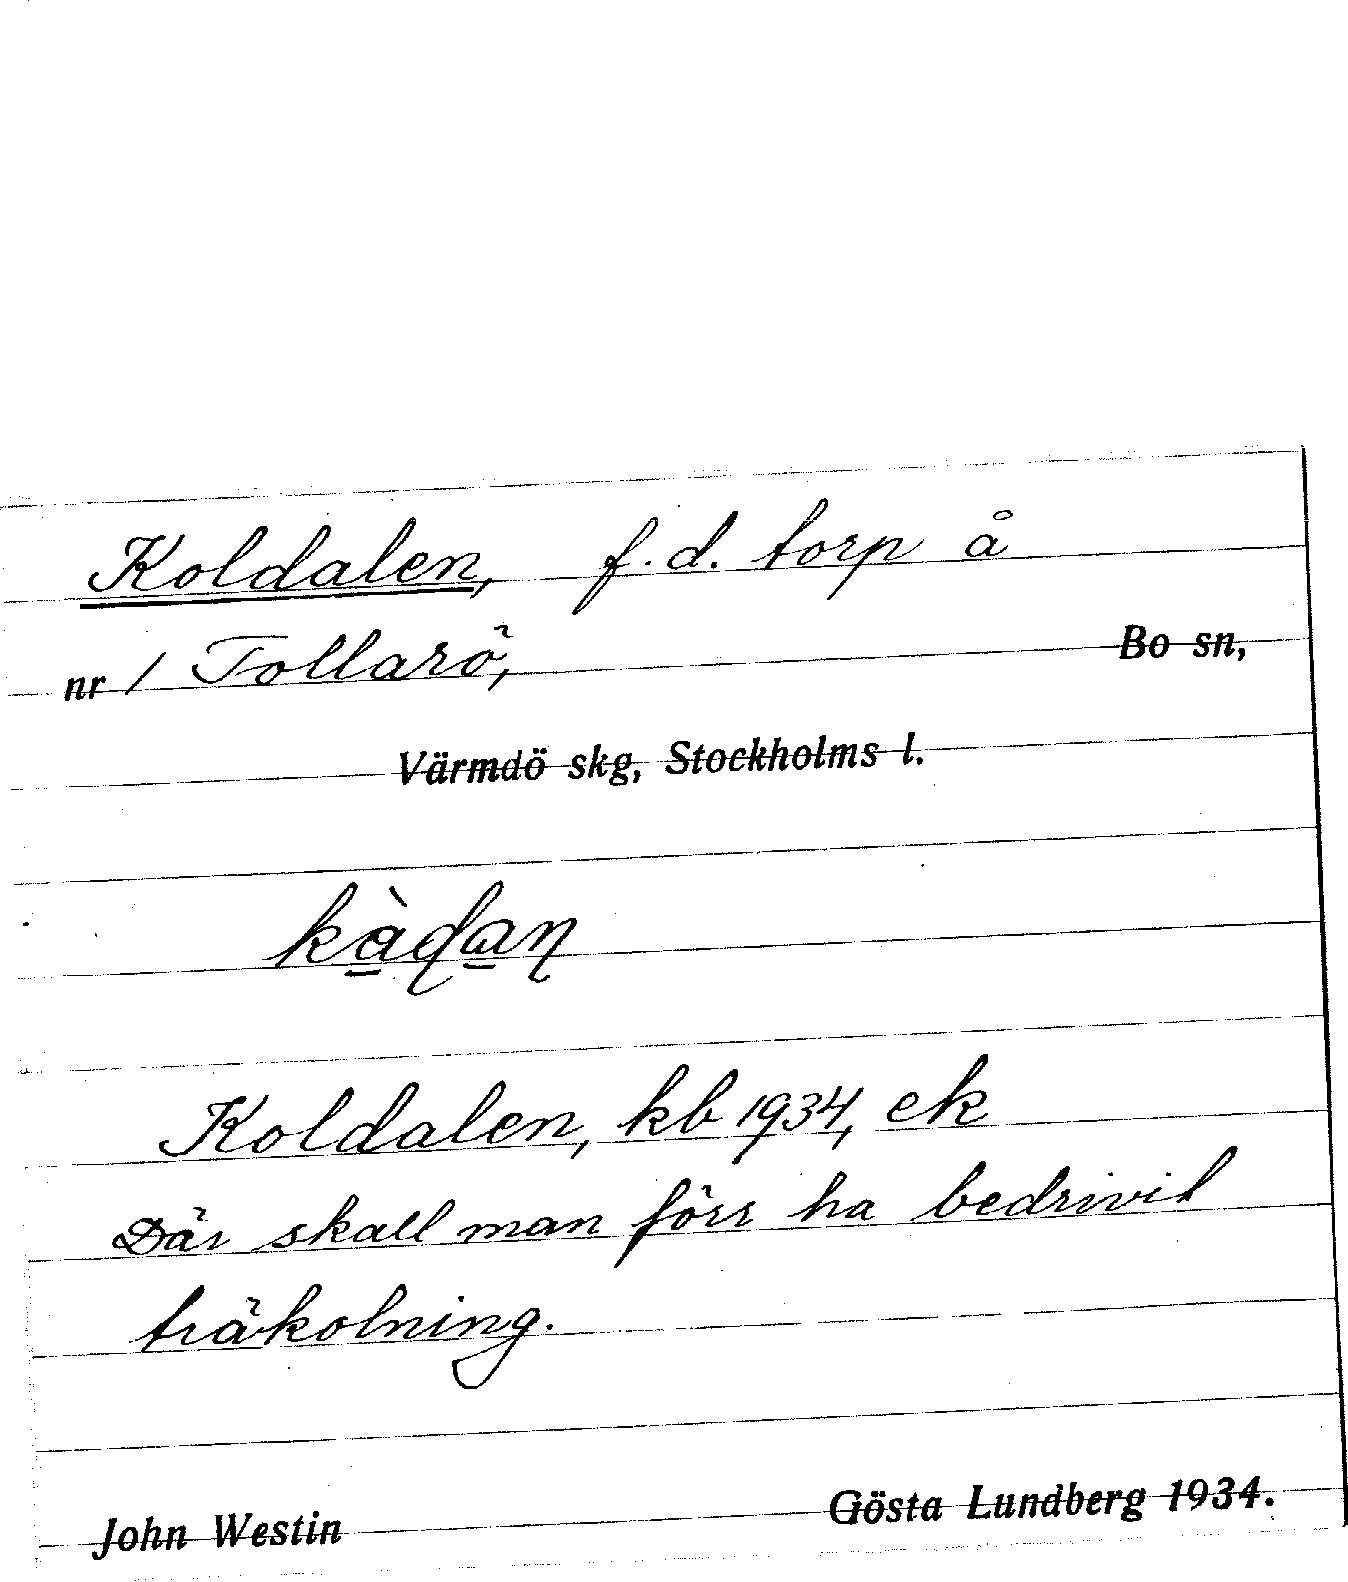 Koldalen, f.d. torp å
nr 1 Tollarö, Bo sn,
Värmdö skg, Stockholms l.
Koldalen, kb 1934, ek
Där skall man förr ha bedrivit
träkolning.
John Westin Gösta Lundberg 1934.